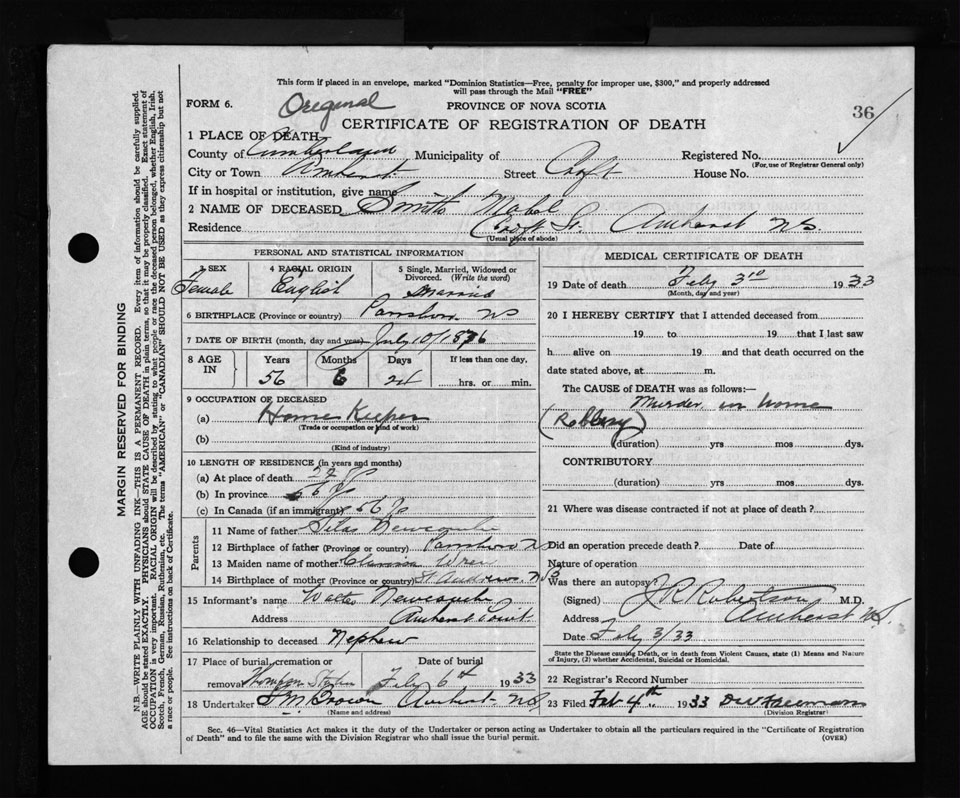 This form if placed in an envelope, marked "Dominion Statistics—Free, penalty for improper use, $300," and properly addressed
will pass through the Mail "FREE"
FORM 6. Original PROVINCE OF NOVA SCOTIA 36
CERTIFICATE OF REGISTRATION OF DEATH
1 PLACE OF DEATH
County of Cumberland Municipality of Registered No.
(For use of Registrar General only)
City or Town Amherst Street Croft House No.
If in hospital or institution, give name
2 NAME OF DECEASED Smith Mabel
Residence Croft St. Amherst NS
(Usual place of abode)
PERSONAL AND STATISTICAL INFORMATION
3 SEX 4 RACIAL ORIGIN 5 Single, Married, Widowed or Divorced. (Write the word)
Female English Married
6 BIRTHPLACE (Province or country) Parrsboro NS
7 DATE OF BIRTH (month, day and year) July 10/1876
8 AGE IN Years Months Days If less than one day,
56 6 24 hrs. or min.
9 OCCUPATION OF DECEASED
(a) Home Keeper
(Trade or occupation or kind of work)
(b)
(Kind of industry)
10 LENGTH OF RESIDENCE (in years and months)
(a) At place of death
(b) In province 56
(c) In Canada (if an immigrant) 56
Parents
11 Name of father Silas Newcombe
12 Birthplace of father (Province or country) Parrsboro NS
13 Maiden name of mother
14 Birthplace of mother (Province or country) St Andrews NS
15 Informant's name Walter Newcombe
Address Amherst Point
16 Relationship to deceased Nephew
17 Place of burial, cremation or removal Date of burial
Feby 6th 1933
18 Undertaker Brown Amherst NS
(Name and address)
MEDICAL CERTIFICATE OF DEATH
19 Date of death Feby 3rd 1933
(Month, day and year)
20 I HEREBY CERTIFY that I attended deceased from
19 to 19 that I last saw
h alive on 19 and that death occurred on the
date stated above, at m.
The CAUSE of DEATH was as follows:—
Murder in home
(Robbery)
(duration) yrs mos dys.
CONTRIBUTORY
(duration) yrs mos dys.
21 Where was disease contracted if not at place of death?
Did an operation precede death? Date of
Nature of operation
Was there an autopsy?
(Signed) J R Robertson M.D.
Address Amherst N.S.
Date Feby 3/33
State the Disease causing Death, or in death from Violent Causes, state (1) Means and Nature
of Injury, (2) whether Accidental, Suicidal or Homicidal.
22 Registrar's Record Number
23 Filed Feb 4th 1933
(Division Registrar)
Sec. 46—Vital Statistics Act makes it the duty of the Undertaker or person acting as Undertaker to obtain all the particulars required in the "Certificate of Registration
of Death" and to file the same with the Division Registrar who shall issue the burial permit. (OVER)
MARGIN RESERVED FOR BINDING
N.B.—WRITE PLAINLY WITH UNFADING INK—THIS IS A PERMANENT RECORD. Every item of information should be carefully supplied.
AGE should be stated EXACTLY. PHYSICIANS should STATE CAUSE OF DEATH in plain terms, so that it may be properly classified. Exact statement of
OCCUPATION is very important. RACIAL ORIGIN will be described by stating to what people or race the deceased person belonged, whether English, Irish,
Scotch, French, German, Russian, Ruthenian, etc. The terms "AMERICAN" or "CANADIAN" SHOULD NOT BE USED as they express citizenship but not
a race or people. See instructions on back of Certificate.